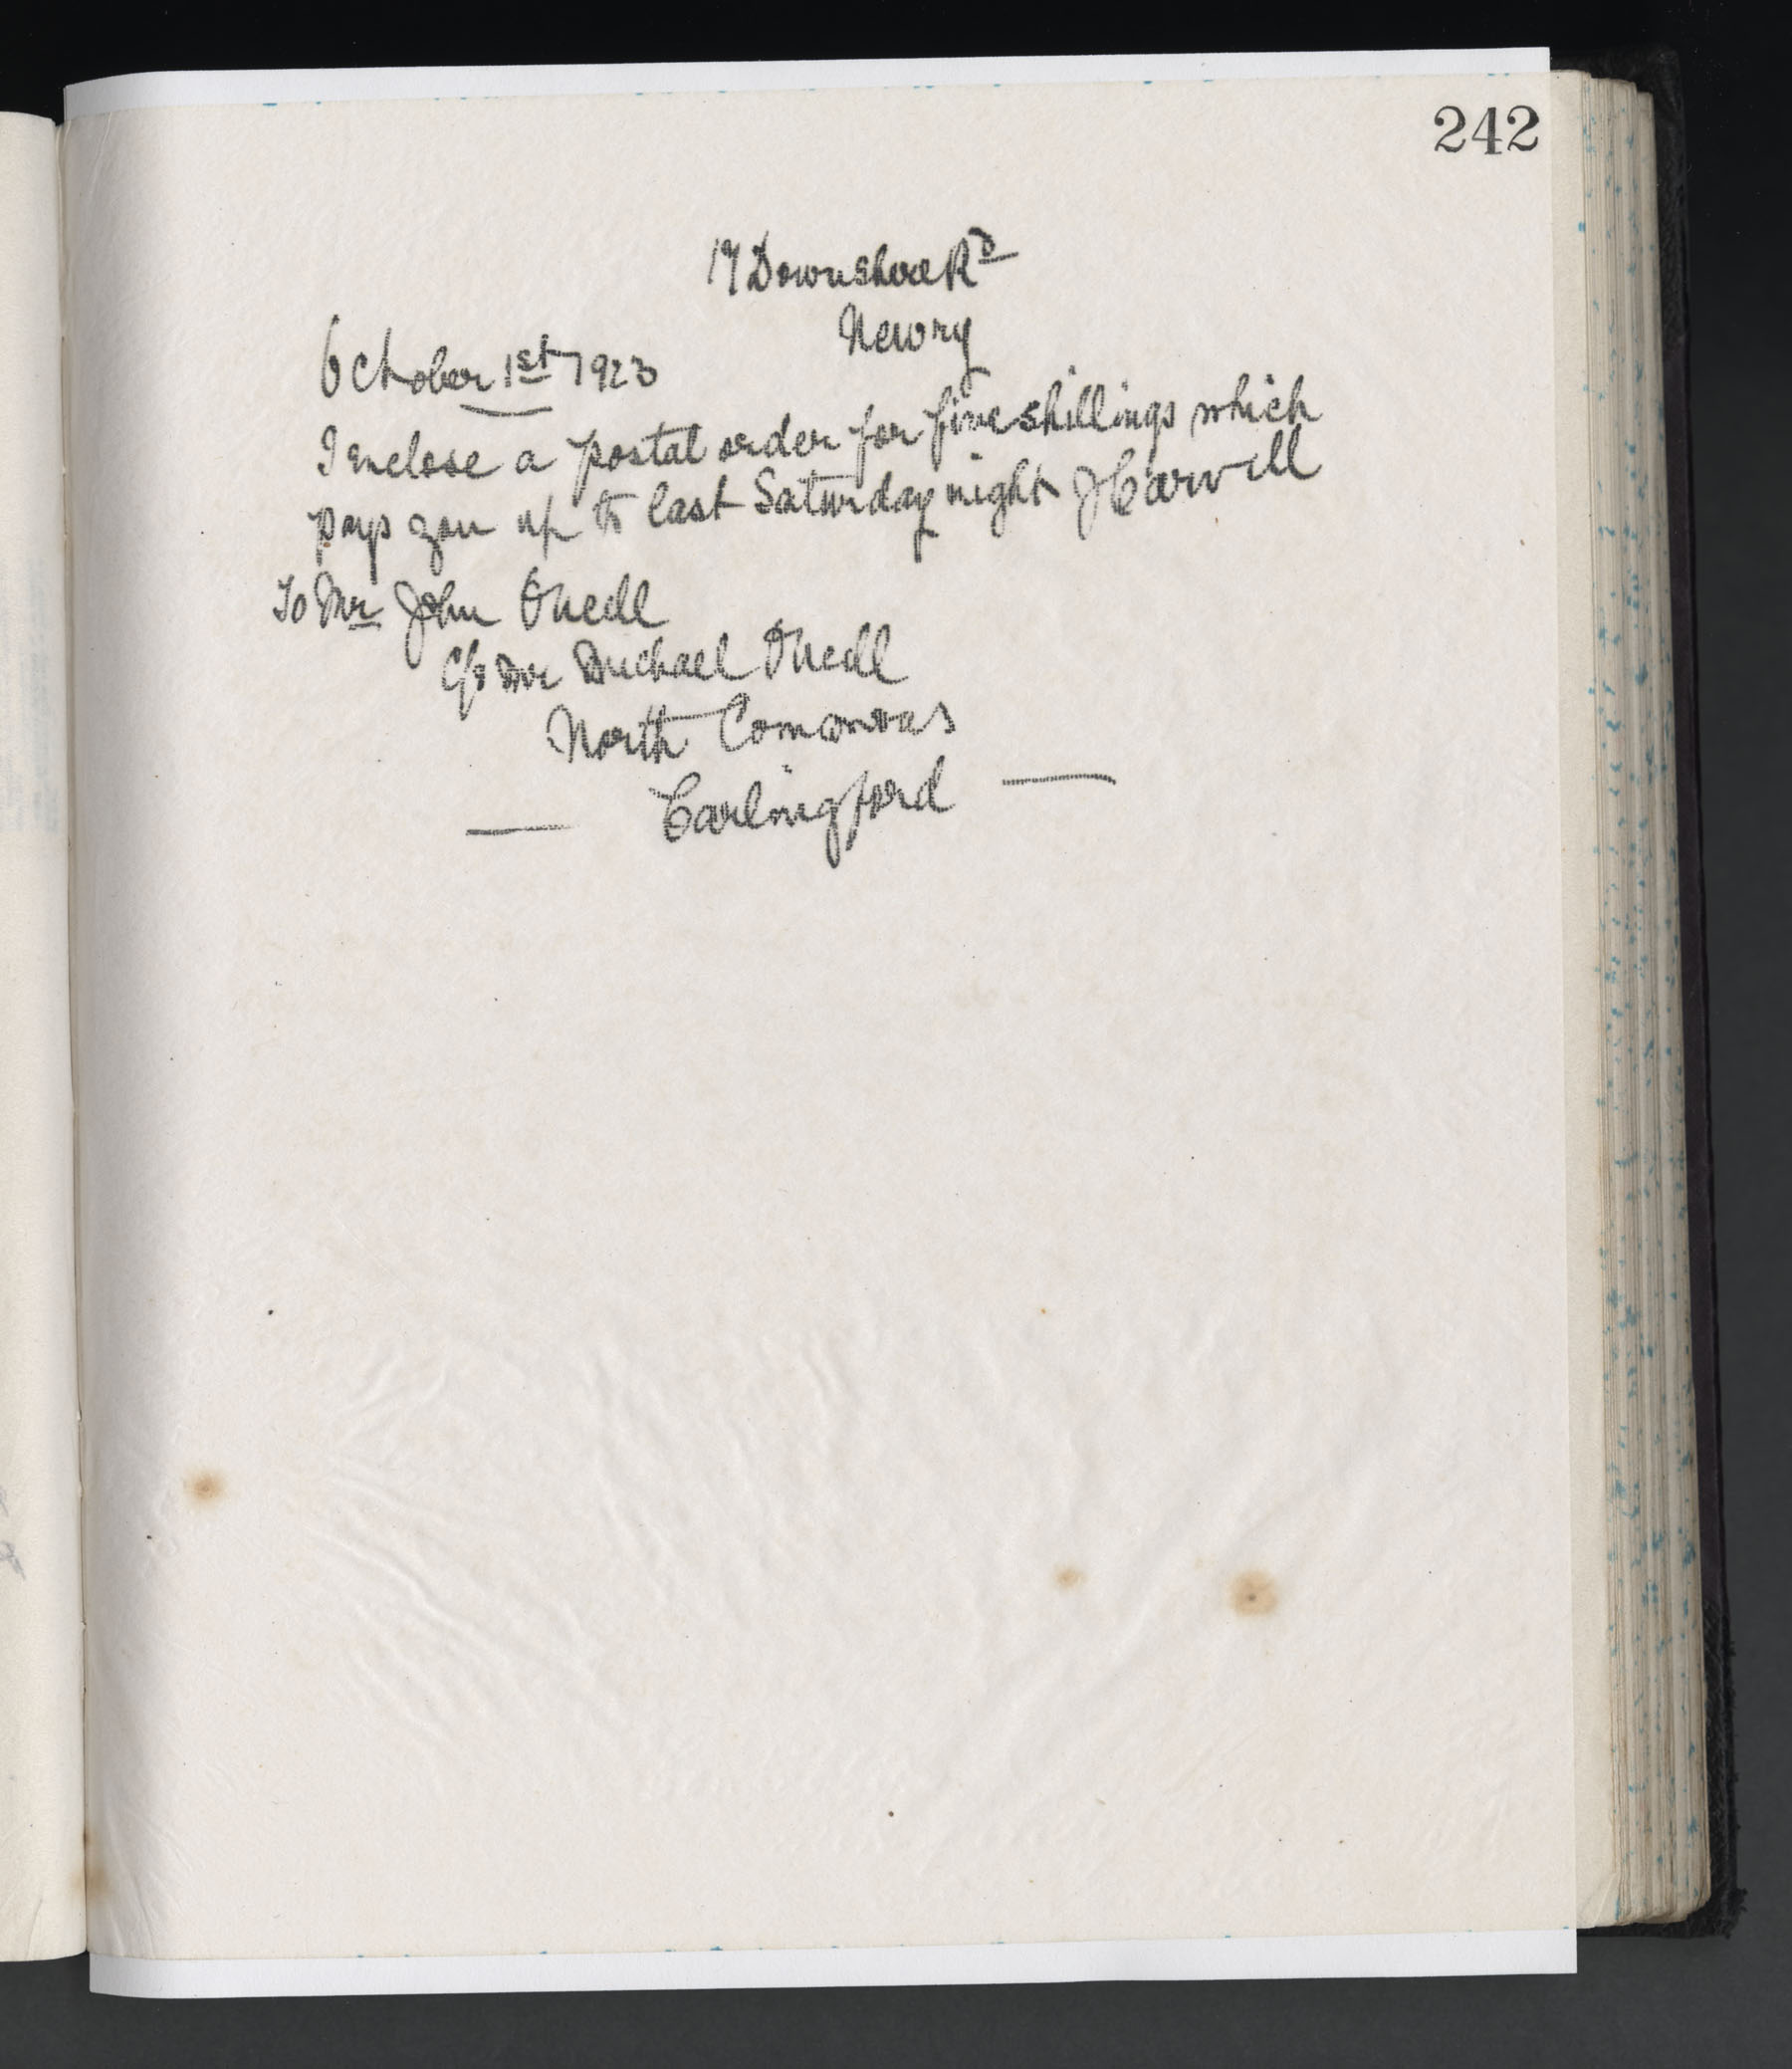 242
17 Downshire Rd
Newry
October 1st 1923
I enclose a postal order for five shillings which
pays you up to last Saturday night J Carvill
To Mr John ONeill
C/o Mr Michael ONeill
North Commons
Carlingford